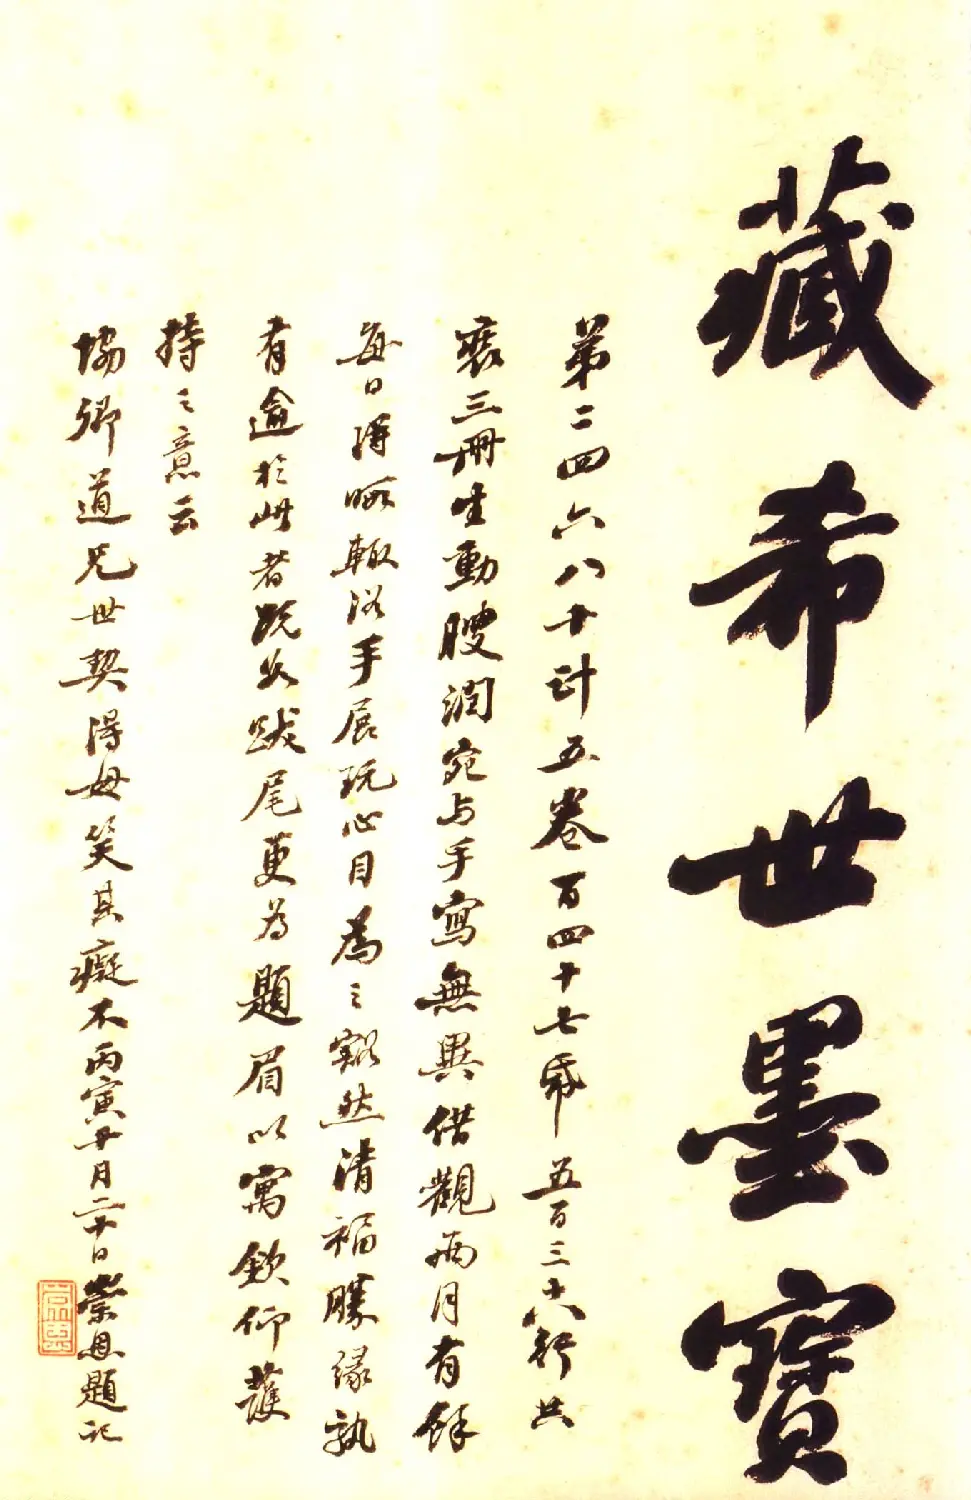 藏希世墨寶
第二四六八十計五卷百四十七帋五百三十六行共
裝三冊生動腴潤宛与手寫無異借觀兩月有餘
每日得暇輒浴手展玩心目為之豁然清福勝緣孰
有逾於此者既父跋尾更為題眉以寓欽仰護
持之意云
協卿道兄世契得毋笑其癡不丙寅丑月二十日崇恩題記